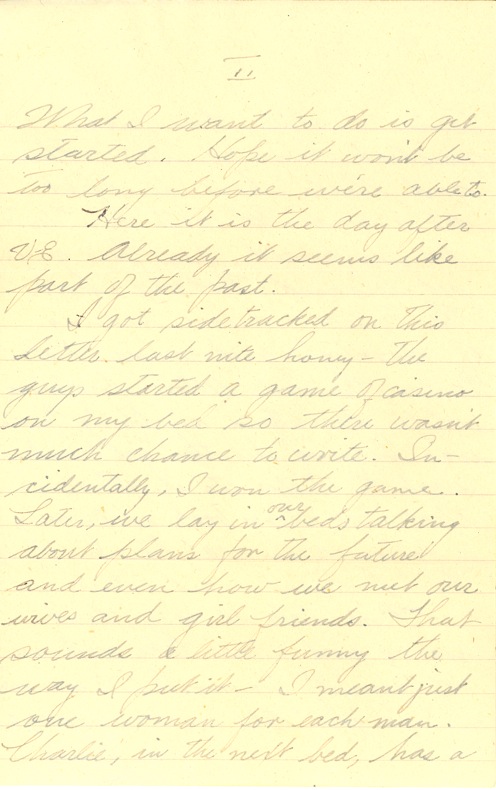 II.
What I want to do is get
started. Hope it won't be
too long before we're able to.
Here it is the day after
VE. Already it seems like
part of the past.
I got sidetracked on this
letter last nite honey - the
guys started a game of casino
on my bed so there wasn't
much chance to write. In-
cidentally, I won the game.
Later, we lay in our beds talking
about plans for the future
and even how we met our
wives and girl friends. That
sounds a little funny the
way I put it - I meant just
one woman for each man.
Charlie, in the next bed, has a